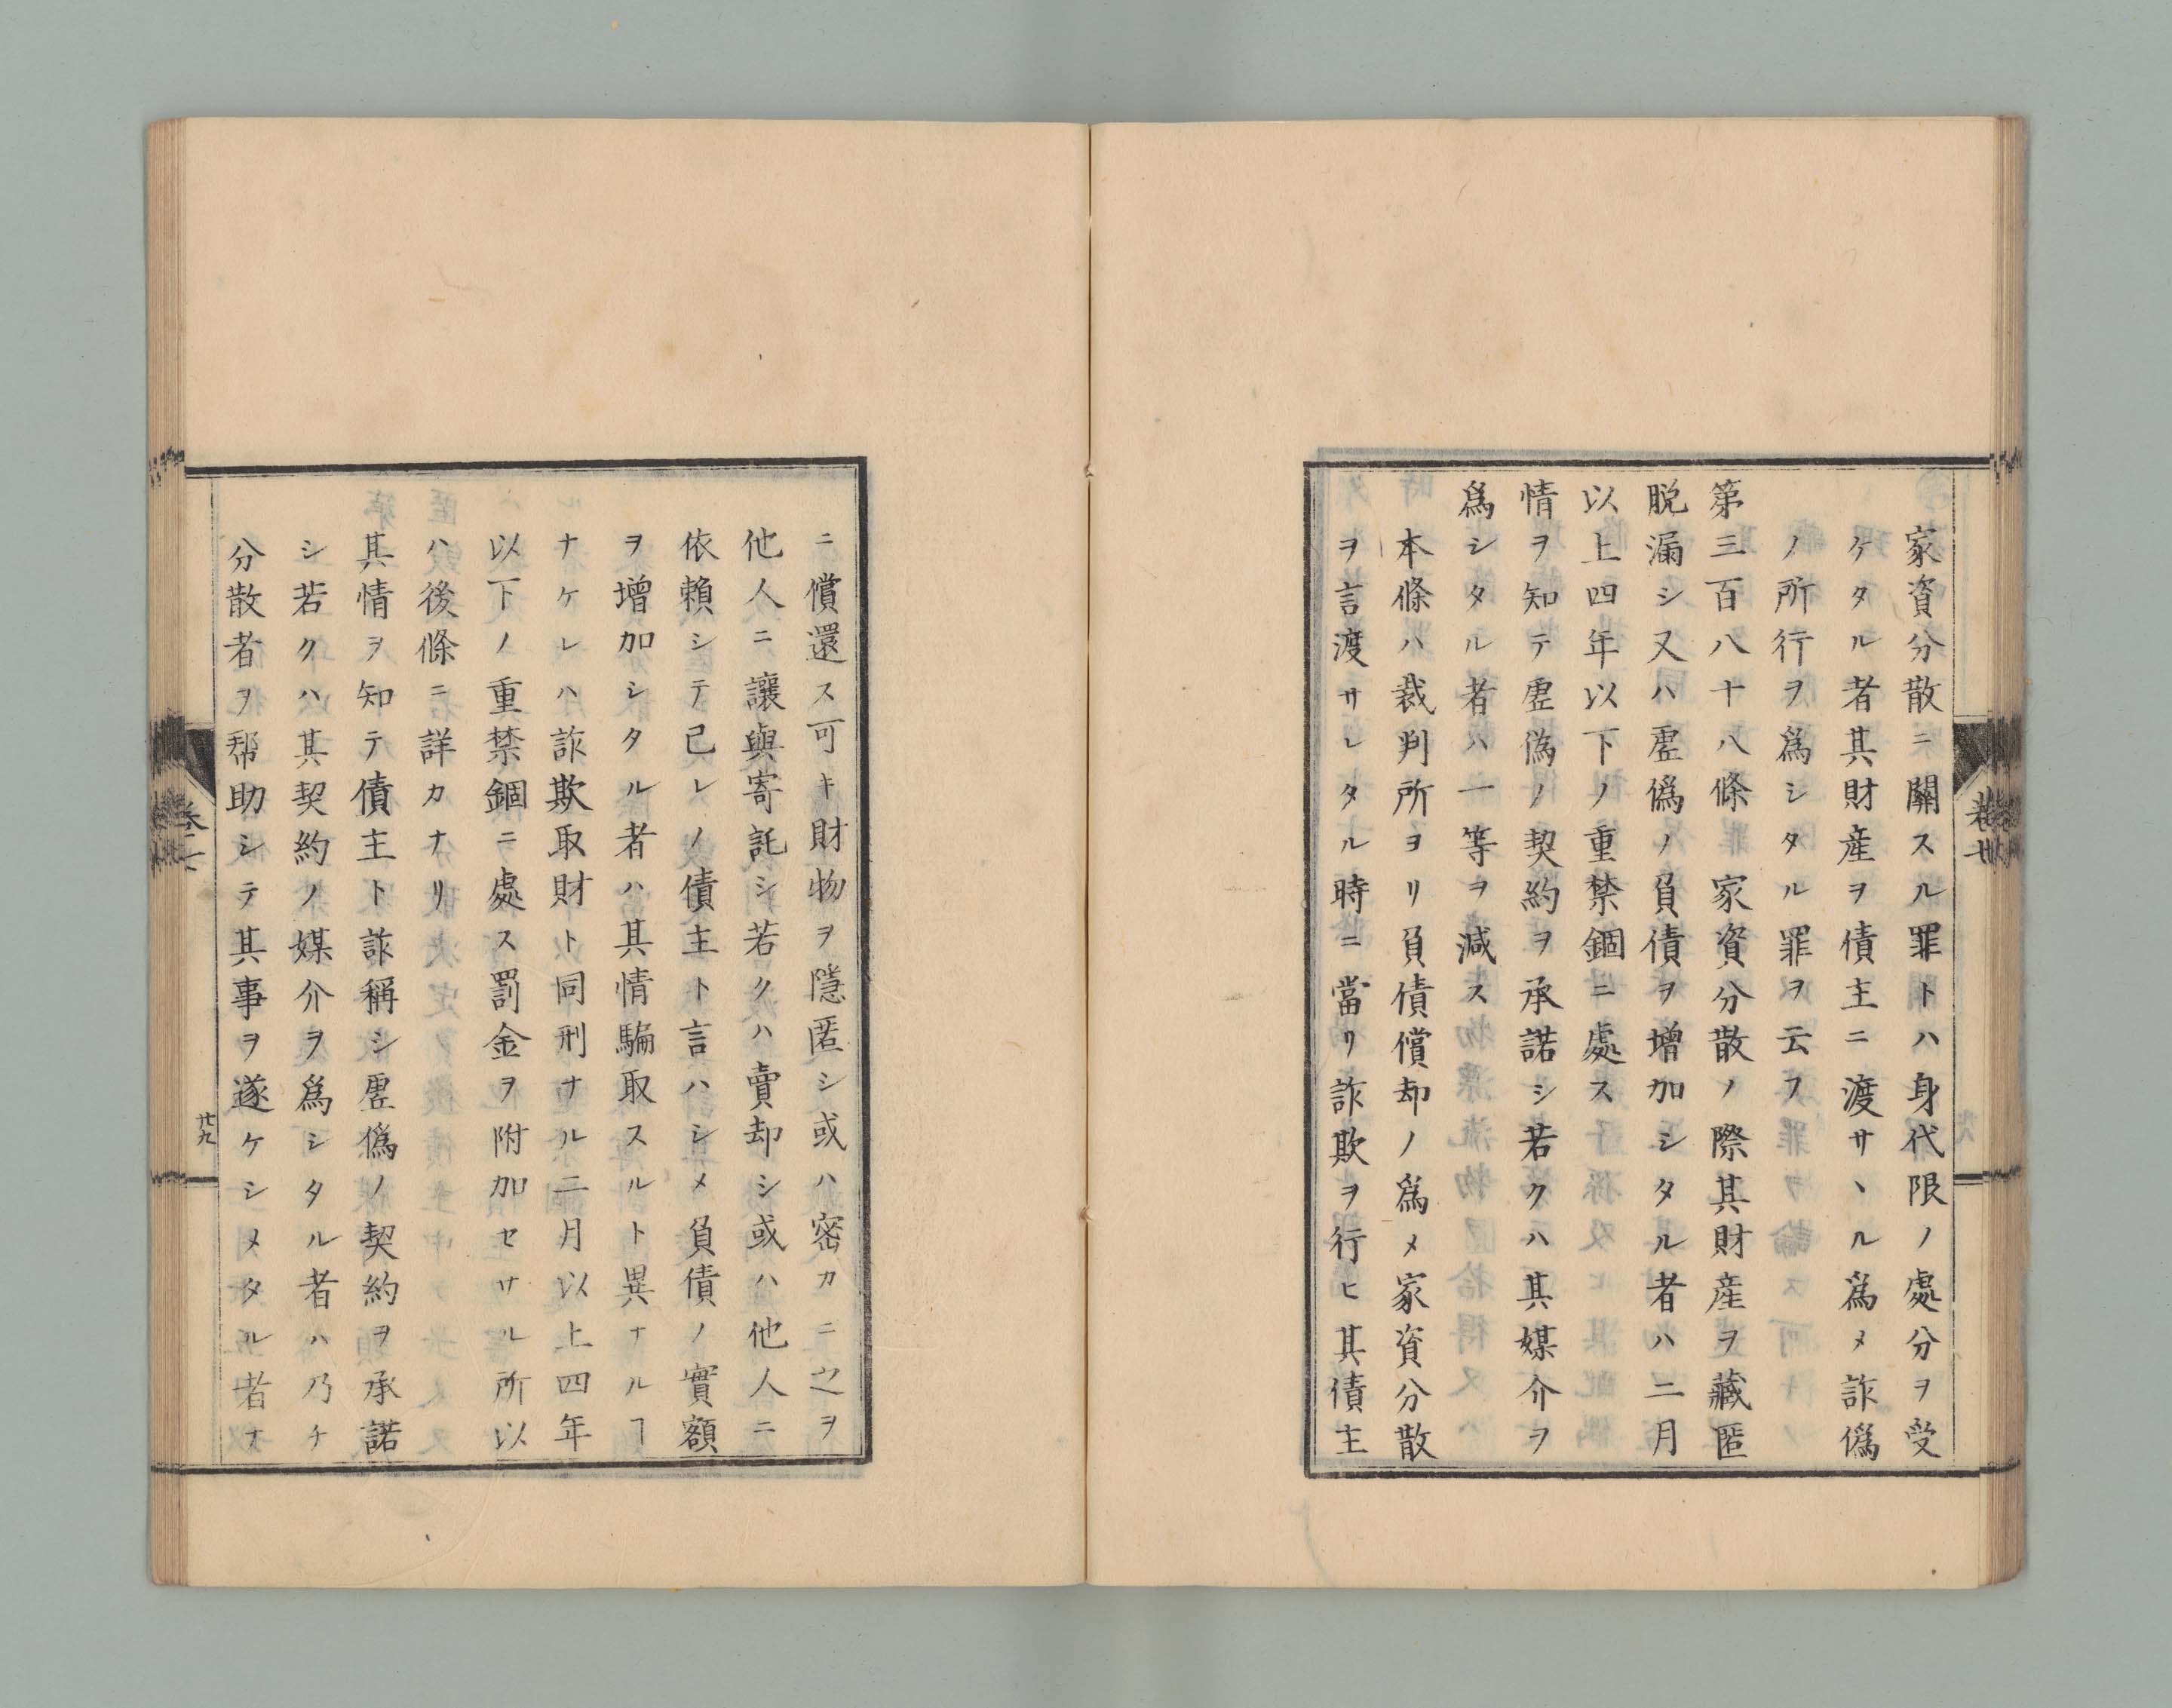 家資分散ニ關スル罪トハ身代限ノ處分ヲ受
ケタル者其財産ヲ債主ニ渡サヽル爲メ詐僞
ノ所行ヲ爲シタル罪ヲ云フ
第三百八十八條家資分散ノ際其財産ヲ藏匿
脱漏シ又ハ虚僞ノ負債ヲ增加シタル者ハ二月
以上四年以下ノ重禁錮ニ處ス
情ヲ知テ虚僞ノ契約ヲ承諾シ若クハ其媒介ヲ
爲シタル者ハ一等ヲ減ス
本條ハ裁判所ヨリ負債償却ノ爲メ家資分散
ヲ言渡サレタル時ニ當リ詐欺ヲ行ヒ其債主
ニ償還ス可キ財物ヲ隱匿シ或ハ密カニ之ヲ
他人ニ讓與寄託シ若クハ賣却シ或ハ他人ニ
依賴シテ已レノ債主ト言ハシメ負債ノ實額
ヲ增加シタル者ハ其情騙取スルト異ナルヿ
ナケレハ詐欺取財ト同刑ナル二月以上四年
以下ノ重禁錮ニ處ス罰金ヲ附加セサル所以
ハ後條ニ詳カナリ
其情ヲ知テ債主ト詐稱シ虚僞ノ契約ヲ承諾
シ若クハ其契約ノ媒介ヲ爲シタル者ハ乃チ
分散者ヲ幇助シテ其事ヲ遂ケシメタル者ナ
廿九